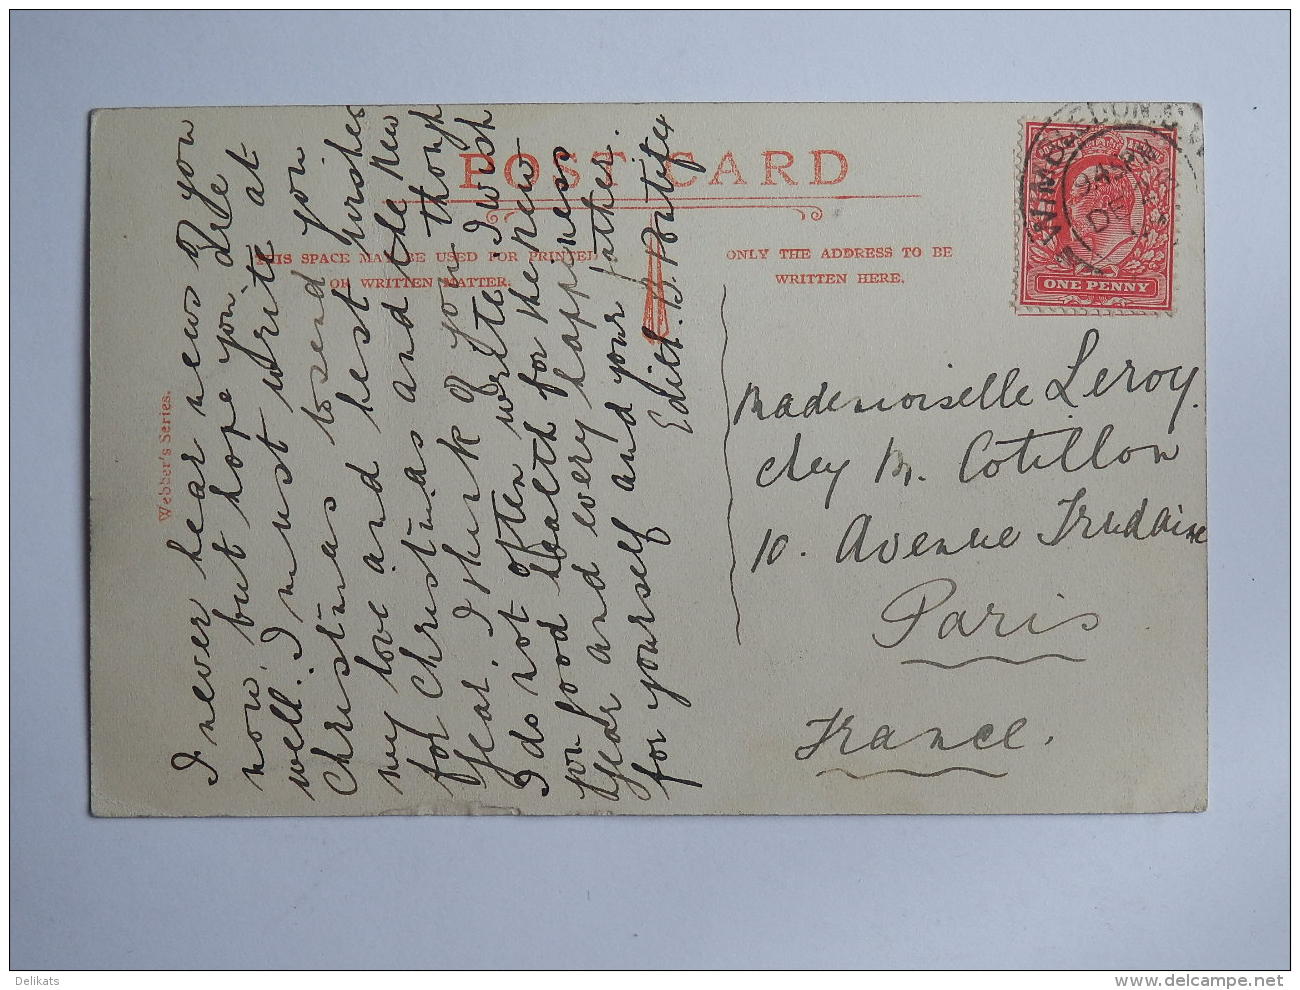 POST CARD
THIS SPACE MAY BE USED FOR PRINTED
OR WRITTEN MATTER.
ONLY THE ADDRESS TO BE
WRITTEN HERE.
Webber's Series.
I never hear news of you
now, but hope you are
well. I must write at
Christmas to send you
my love and best wishes
for Christmas and the New
Year. I think of you though
I do not often write. I wish
you good health for the new
Year and every happiness
for yourself and your father.
Edith. B. Pontifex
Mademoiselle Leroy.
chez M. Cotillon
10. Avenue Trudaine
Paris
France.
WIMBLEDON
9 45 PM
DE
ONE PENNY
Delikats
delcampe.net